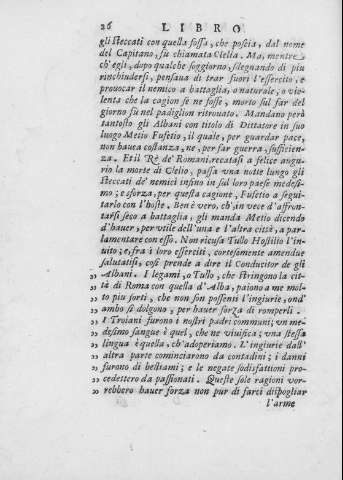 26 LIBRO
gli steccati con quella fossa, che poscia, dal nome
del Capitano, fù chiamata Clelia. Ma, mentre
ch'egli, dopo qualche soggiorno, sdegnando di più
rinchiudersi, pensaua di trar fuori l'essercito, e
prouocar il nemico a battaglia, o naturale, o vio-
lenta che la cagion se ne fosse, morto sul far del
giorno fù nel padiglion ritrouato. Mandano però
tantosto gli Albani con titolo di Dittatore in suo
luogo Metio Fufetio, il quale, per guardar pace,
non hauea costanza, ne, per far guerra, sufficien-
za. Et il Rè de' Romani, recatasi a felice augu-
rio la morte di Clelio, passa vna notte lungo gli
steccati de' nemici infino in sul loro paese medesi-
mo; e sforza, per questa cagione, Fufetio a segui-
tarlo con l'hoste. Ben è vero, ch'in vece d'affron-
tarsi seco a battaglia, gli manda Metio dicendo
d'hauer, per vtile dell'una e l'altra città, a par-
lamentare con esso. Non ricusa Tullo Hostilio l'in-
uito; e, fra i loro esserciti, cortesemente amendue
salutatisi, così prende a dire il Conducitor de gli
„ Albani. I legami, o Tullo, che stringono la cit-
„ tà di Roma con quella d'Alba, paiono a me mol-
„ to piu forti, che non son possenti l'ingiurie, ond'
„ ambo si dolgono, per hauer forza di romperli.
„ I Troiani furono i nostri padri communi; vn me-
„ desimo sangue è quel, che ne viuifica; vna stessa
„ lingua è quella, ch'adoperiamo. L'ingiurie dall'
„ altra parte cominciarono da contadini; i danni
„ furono di bestiami; e le negate sodisfattioni pro-
„ cedettero da passionati. Queste sole ragioni vor-
„ rebbero hauer forza non pur di farci dispogliar
l'arme